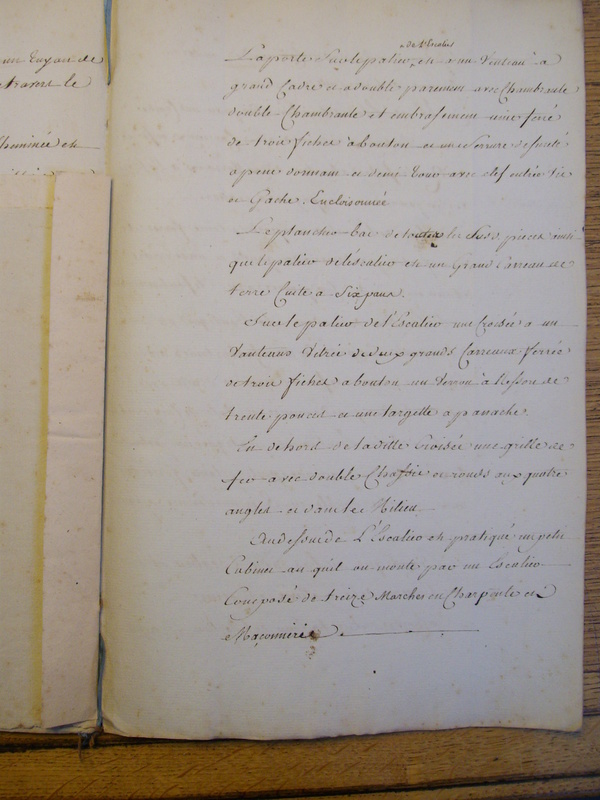 un tuyau de
travers le
Cheminée est
de l'Escalier
La porte Sur le palier est a un Venteau a
grand Cadre et a double parement avec Chambranle
double Chambranle et embrasement uni ferré
de trois fiches a bouton et une Serrure de sureté
a pene dormant et demi tour avec clef entrée Vis
et Gache Encloisonnée
Le plancher bas de toutes les Susd. pieces ainsi
que le palier de l'escalier est un Grand Carreau de
terre Cuite à Six pans.
Sur le palier de l'Escalier une Croisée a un
Vanteau Vitrée de deux grands Carreaux ferrée
de trois fiches a bouton un Verrou à Ressort de
trente pouces et une targette a panache.
En dehors de la ditte Croisée une grille de
fer avec double Chassie et ronds aux quatre
angles et dans le Milieu
Au dessus de L'Escalier est pratiqué un petit
Cabinet au quel on monte par un Escalier
Composé de treize Marches en Charpente et
Maçonnerie